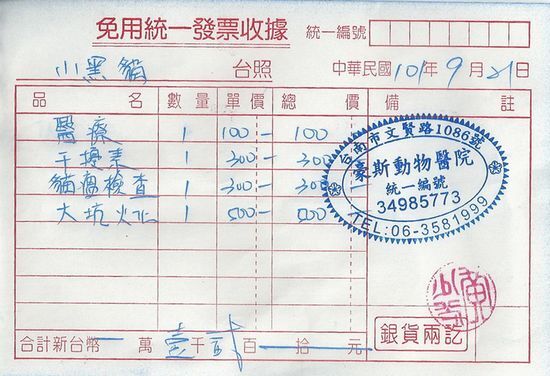 免用統一發票收據 統一編號
小黑貓 台照 中華民國101年9月21日
品名 數量 單價 總價 備註
醫療 1 100- 100
干擾素 1 300- 300
貓瘟檢查 1 300- 300
大坑火化 1 500- 500
台南市文賢路1086號
豪斯動物醫院
統一編號
34985773
TEL:06-3581999
銀貨兩訖
合計新台幣 萬壹千貳百 拾 元